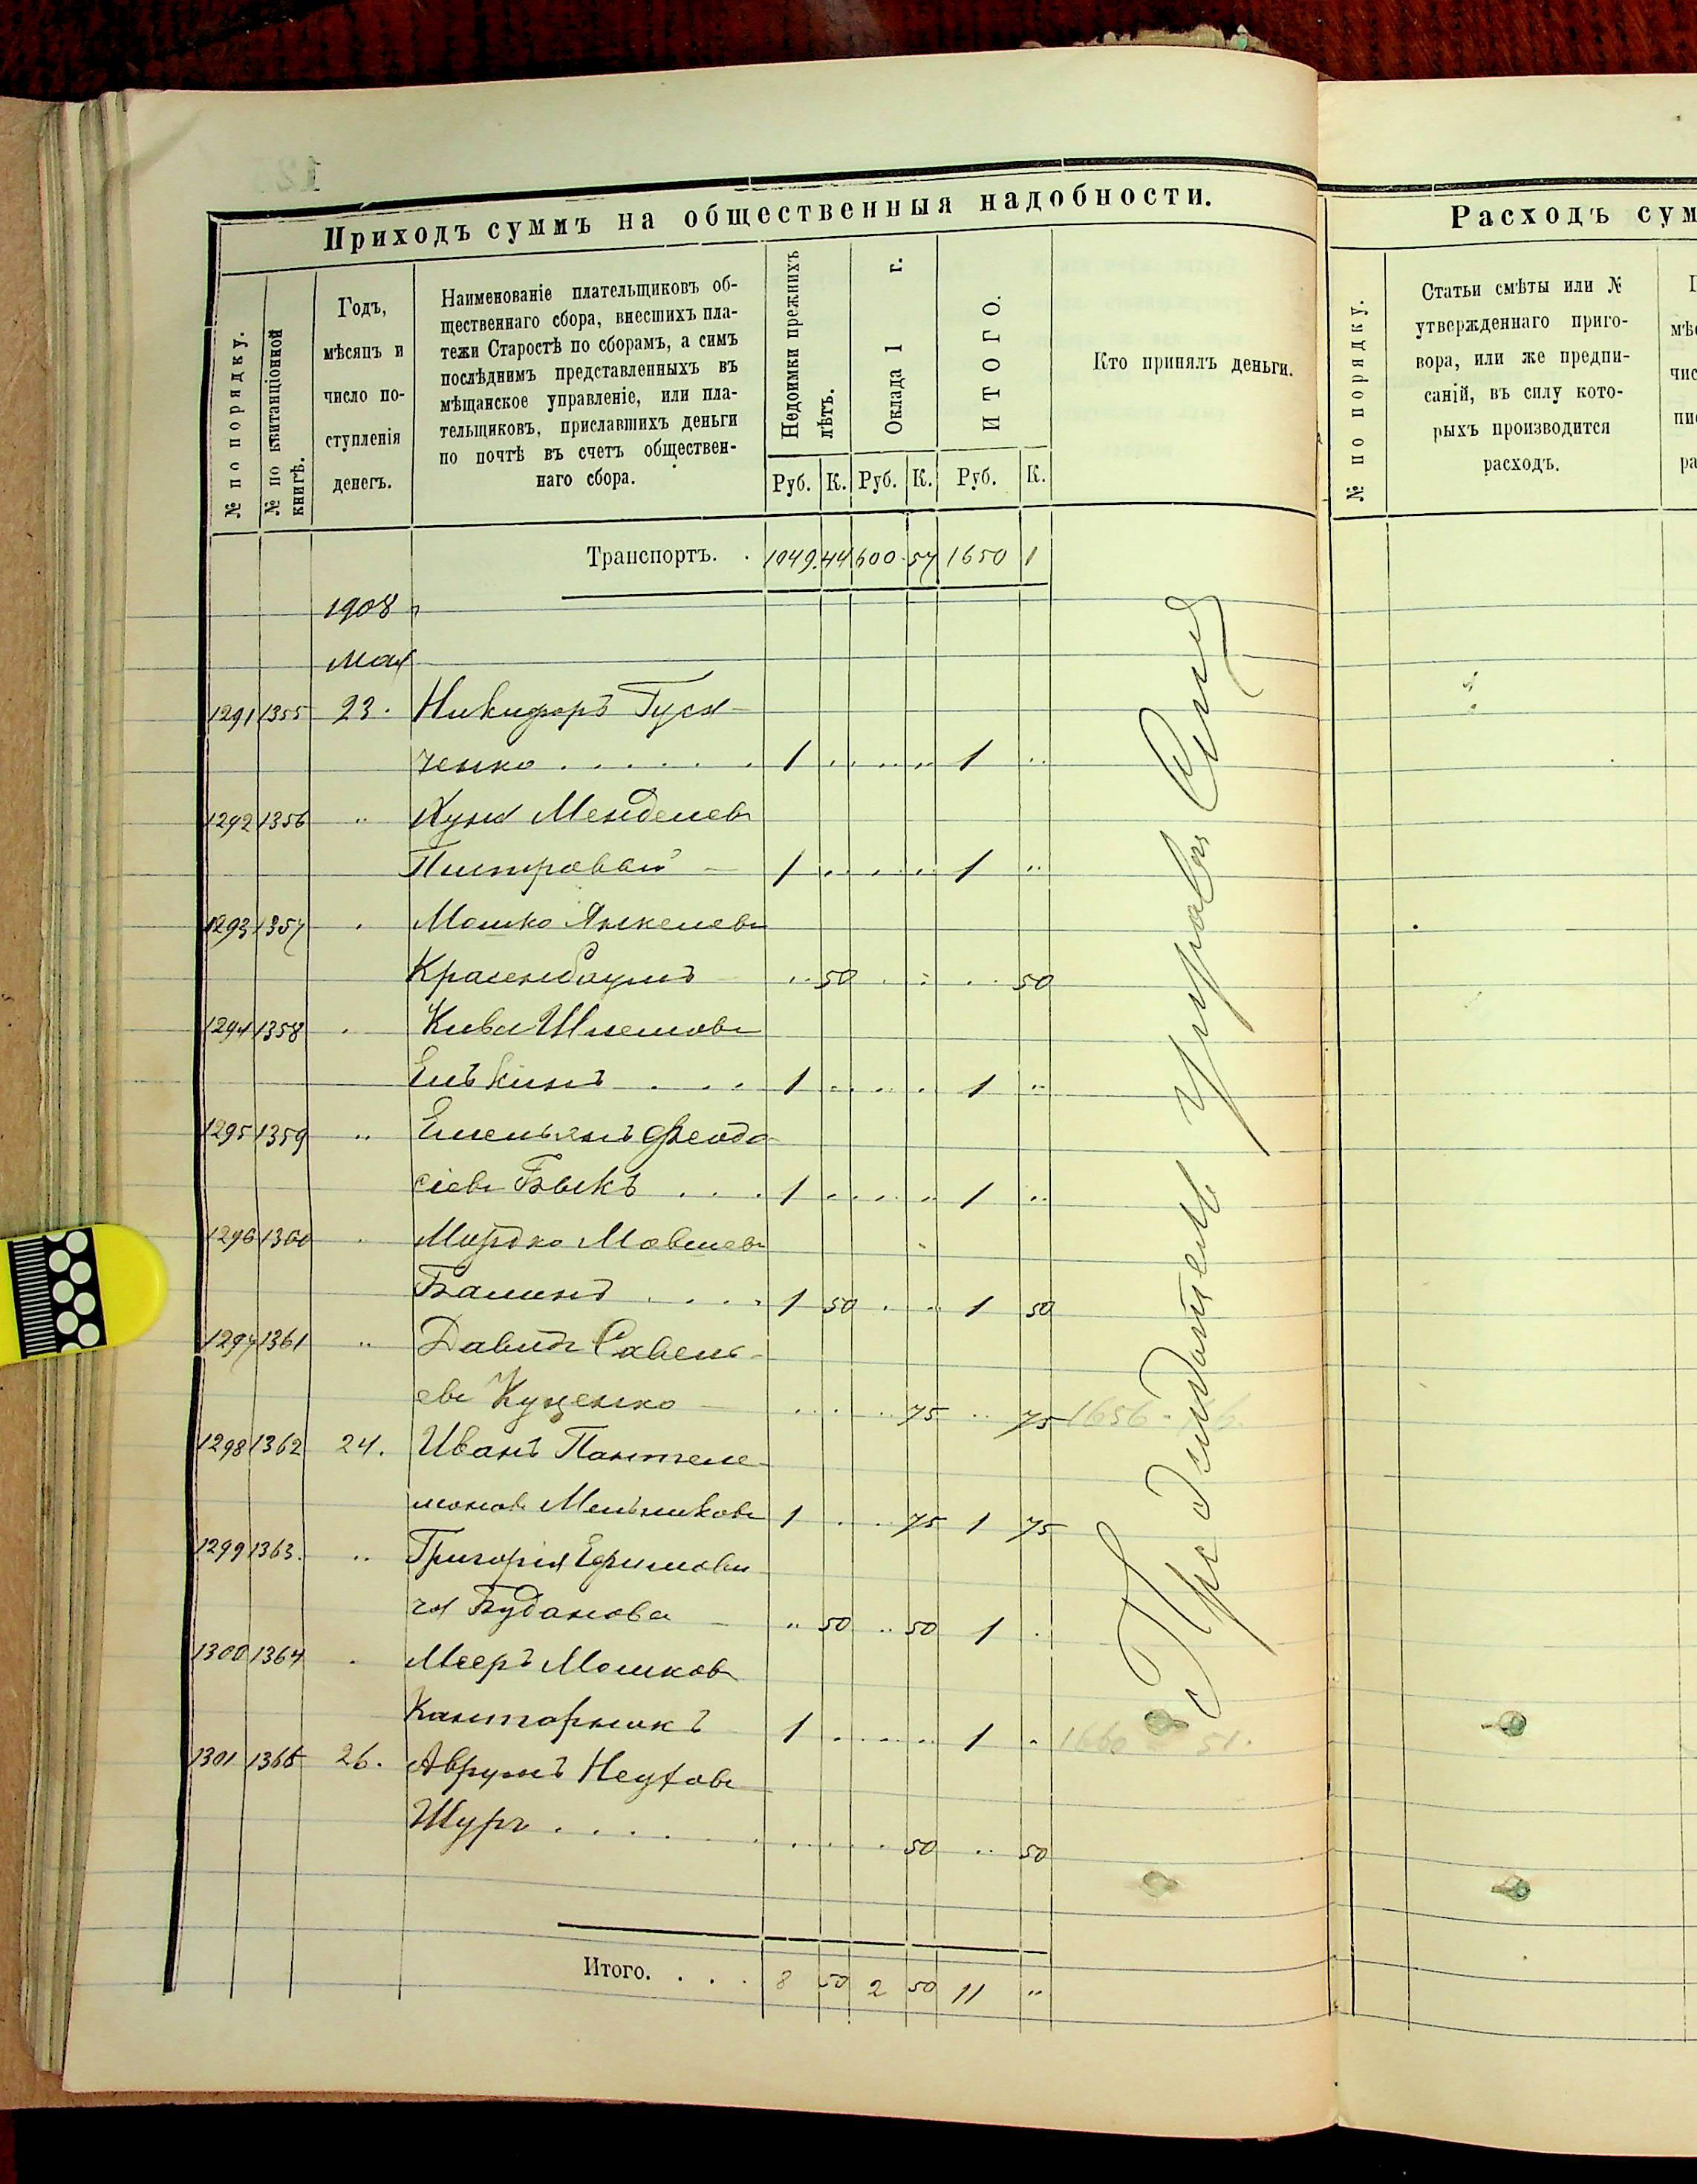 Приходъ суммъ на общественныя надобности.
№ по порядку.
№ по квитанціонной книгѣ.
Годъ,
мѣсяцъ и
число по-
ступленія
денегъ.
Наименованіе плательщиковъ об-
щественнаго сбора, внесшихъ пла-
тежи Старостѣ по сборамъ, а симъ
послѣднимъ представленныхъ въ
мѣщанское управленіе, или пла-
тельщиковъ, приславшихъ деньги
по почтѣ въ счетъ обществен-
наго сбора.
Недоимки прежнихъ лѣтъ.
Оклада 1 г.
ИТОГО.
Кто принялъ деньги.
Руб. К. Руб. К. Руб. К.
Транспортъ. 1049. 44 600 57 1650 1
1908
Мая
1291 1355 23. Никифоръ Гуся-
ченко . . . . . . 1 .. .. .. 1 ..
1292 1356 " Менделевъ
1 .. .. .. 1 ..
1293 1357 " Мошко Янкелевъ
.. 50 .. .. .. 50
1294 1358 " Кива
Елькинъ . . . 1 .. .. .. 1 ..
1295 1359 " Емельянъ Феодо
сіевъ Быкъ . . . 1 .. .. .. 1 ..
1296 1360 " Мордко Мовшевъ
. . . . 1 50 .. .. 1 50
1297 1361 " Давидъ Савель-
евъ Куценко .. .. .. 75 .. 75
1298 1362 24. Иванъ Пантеле-
моновъ Мельниковъ 1 .. .. 75 1 75
1299 1363. " Григорія Ефимови
ча Буданова " 50 .. 50 1 ..
1300 1364 " Мееръ Мошковъ
1 .. .. .. 1 ..
1301 1365 26. Аврумъ Неуховъ
Шуръ . . . . . .. .. .. 50 .. 50
Итого. . . . 8 50 2 50 11 "
Предсѣдатель управы
Расходъ сум
№ по порядку.
Статьи смѣты или №
утвержденнаго приго-
вора, или же предпи-
саній, въ силу кото-
рыхъ производится
расходъ.